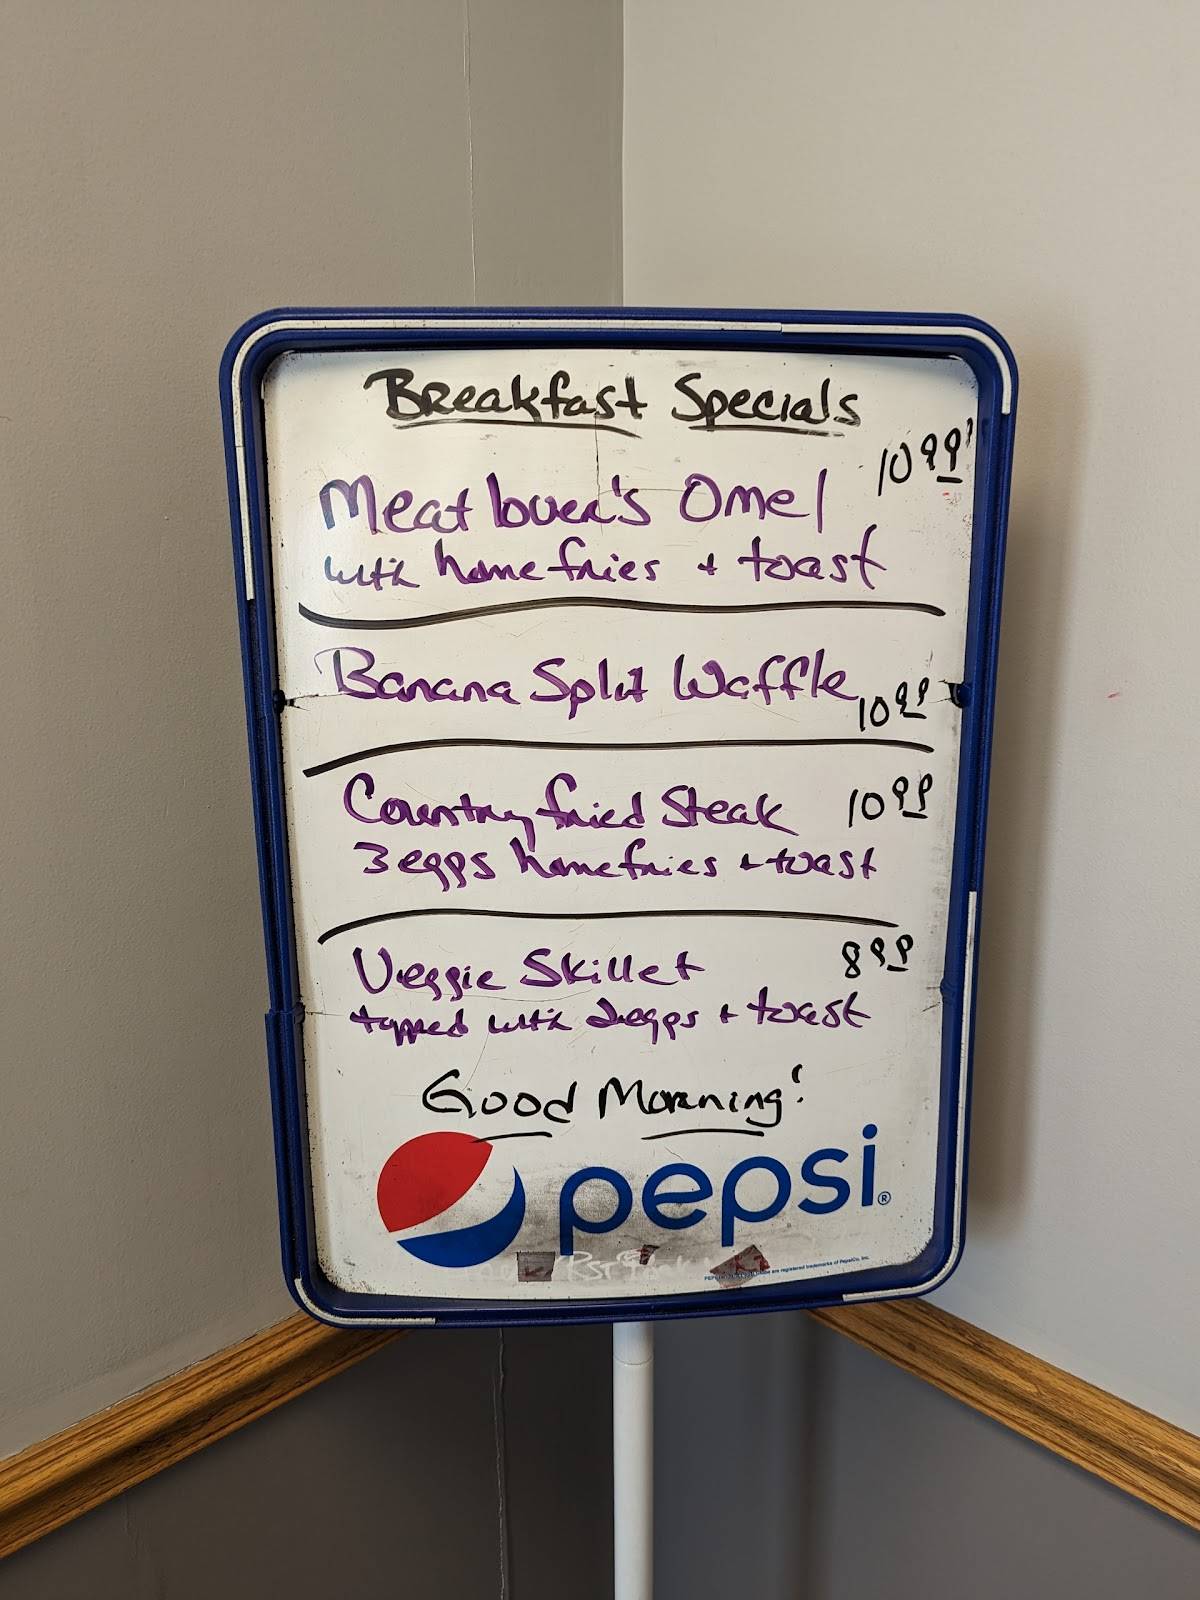 Breakfast Specials
10 99
Meat lover's Omel
with home fries + toast
Banana Split Waffle
10 99
Country fried Steak 10 99
3 eggs home fries + toast
Veggie Skillet 8 99
topped with 2 eggs + toast
Good Morning!
pepsi®
are registered trademarks of PepsiCo, Inc.